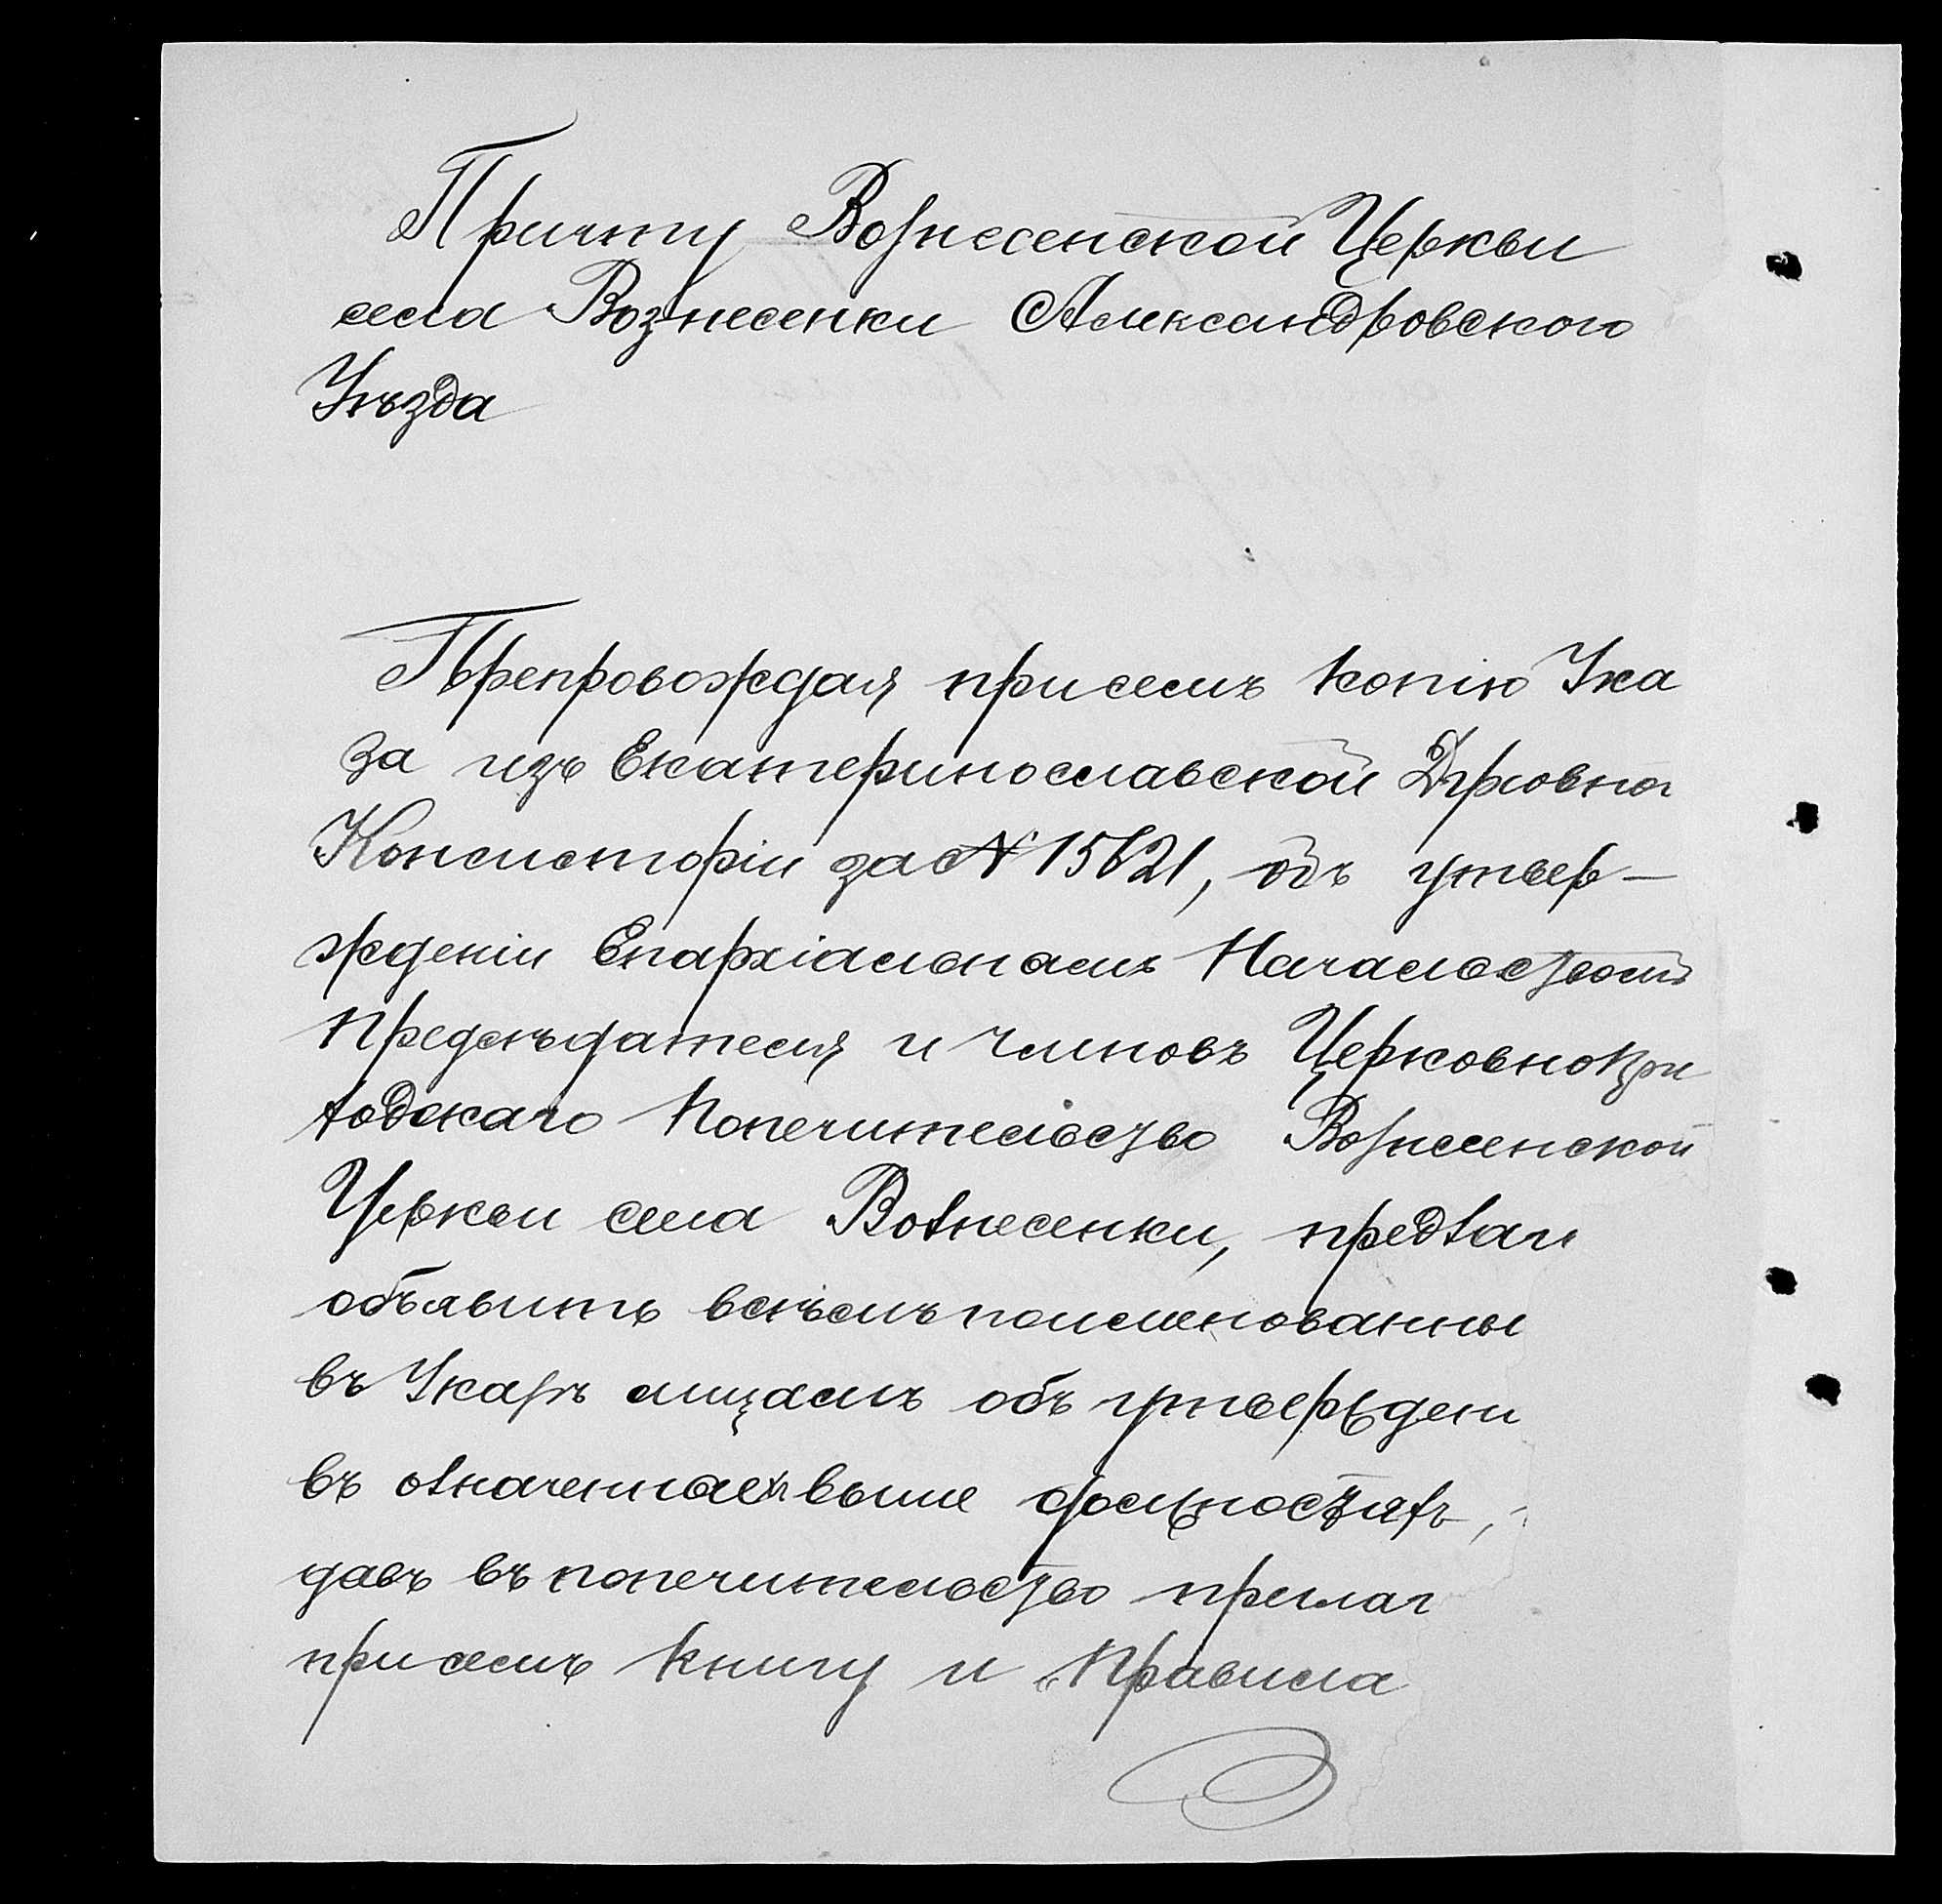 Причту Вознесенской Церкви
села Вознесенки Александровского
Уѣзда
Препровождая при семъ копію Ука
за изъ Екатеринославской Духовной
Консисторіи за № 15621, объ утвер-
жденіи Епархіальнамъ Начальствомъ
предсѣдателя и членовъ Церковнопри
ходскаго Попечительство Вознесенской
Церкви села Вознесенки, предлаг
объявить всѣмъ поименованны
въ Указѣ лицамъ объ утвержден
въ означенныхъ выше должностяхъ,
давъ въ попечительство прилаг
при семъ книгу и "Правила